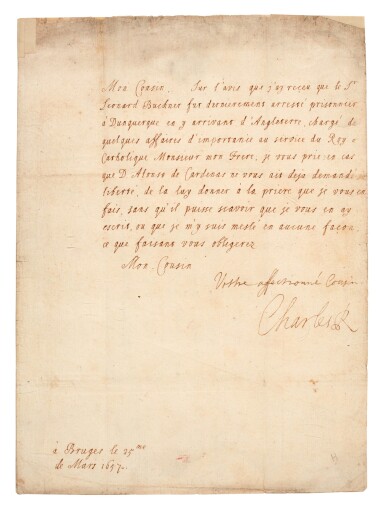 Mon Cousin. Sur l'avis que j'ay reçeu que le Sr
Leonard Buckner fut dernierement arresté prisonnier
à Dunquerque en y arrivant d'Angleterre, chargé de
quelques affaires d'importance au service du Roy
Catholique Monsieur mon Frere, je vous prie en cas
que D. Alonso de Cardenas ne vous ait desja demandé sa
liberté, de la luy donner à la priere que je vous en
fais, sans qu'il puisse scavoir que je vous en ay
escrit, ou que je m'y suis meslé en aucune façon,
ce que faisant vous obligerez
Mon Cousin
Vostre affectionné Cousin
Charles R
à Bruges le 25me
de Mars 1657.